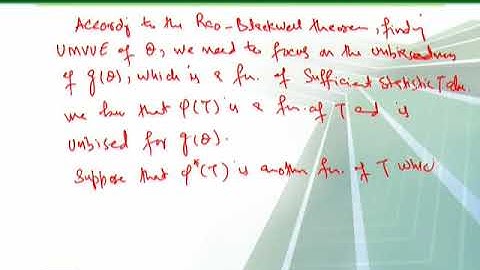 According to the Rao-Blackwell theorem, finding
UMVUE of θ, we need to focus on the unbiasedness
of g(θ), which is a fn. of Sufficient Statistic T
we know that φ(T) is a fn. of T and is
Unbised for g(θ).
Suppose that φ*(T) is another fn. of T which